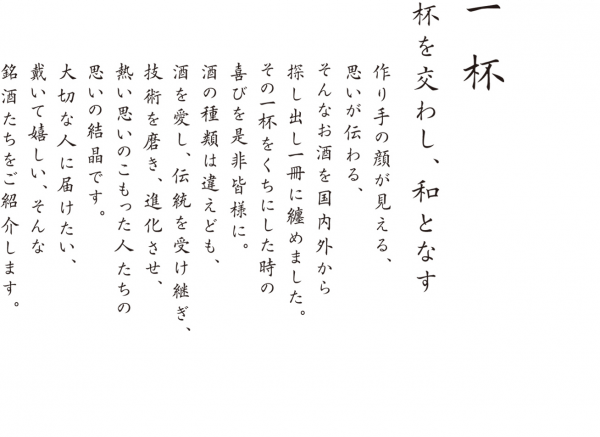 一杯
杯を交わし、和となす
作り手の顔が見える、
思いが伝わる、
そんなお酒を国内外から
探し出し一冊に纏めました。
その一杯をくちにした時の
喜びを是非皆様に。
酒の種類は違えども、
酒を愛し、伝統を受け継ぎ、
技術を磨き、進化させ、
熱い思いのこもった人たちの
思いの結晶です。
大切な人に届けたい、
戴いて嬉しい、そんな
銘酒たちをご紹介します。